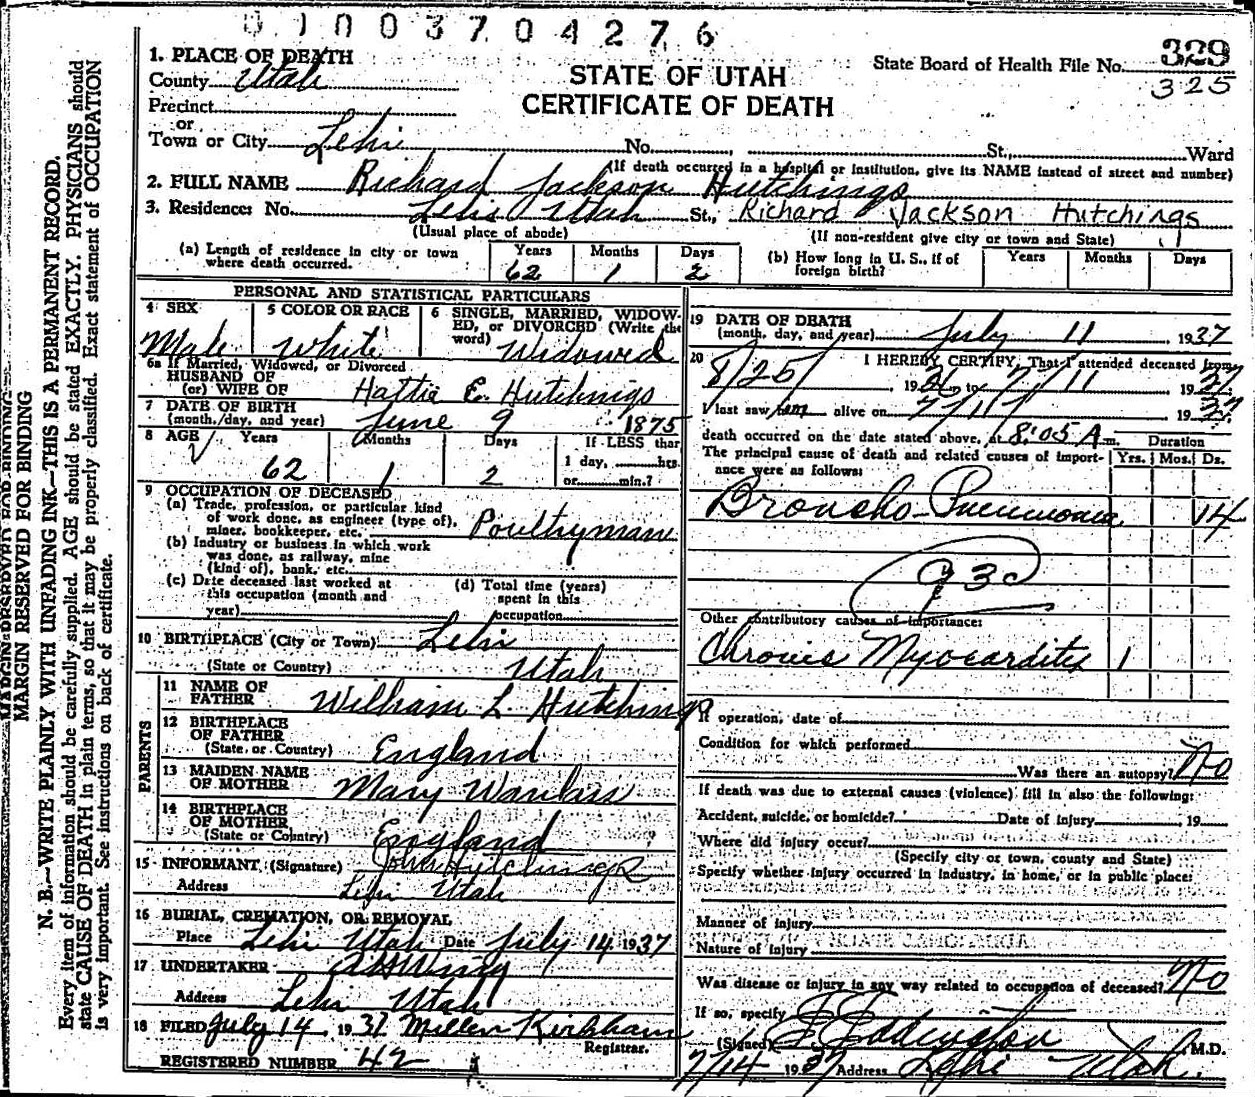 01003704276
1. PLACE OF DEATH
County Utah
Precinct
or
Town or City Lehi No. , St., Ward
STATE OF UTAH
CERTIFICATE OF DEATH
State Board of Health File No. 329
325
(If death occurred in a hospital or institution, give its NAME instead of street and number)
2. FULL NAME Richard Jackson Hutchings
3. Residence: No. Lehi Utah St., Richard Jackson Hutchings
(Usual place of abode) (If non-resident give city or town and State)
(a) Length of residence in city or town where death occurred. Years 62 Months 1 Days 2
(b) How long in U. S., if of foreign birth? Years Months Days
PERSONAL AND STATISTICAL PARTICULARS
4 SEX Male
5 COLOR OR RACE White
6 SINGLE, MARRIED, WIDOWED, or DIVORCED (Write the word) Widowed
6a If Married, Widowed, or Divorced
HUSBAND OF
(or) WIFE OF Hattie E. Hutchings
7 DATE OF BIRTH
(month, day, and year) June 9 1875
8 AGE Years 62 Months 1 Days 2 If LESS than
1 day, hrs.
or min.?
9 OCCUPATION OF DECEASED
(a) Trade, profession, or particular kind
of work done, as engineer (type of),
miner, bookkeeper, etc. Poultryman
(b) Industry or business in which work
was done, as railway, mine
(kind of), bank, etc.
(c) Date deceased last worked at
this occupation (month and
year)
(d) Total time (years)
spent in this
occupation
10 BIRTHPLACE (City or Town) Lehi
(State or Country) Utah
PARENTS
11 NAME OF
FATHER William L. Hutchings
12 BIRTHPLACE
OF FATHER
(State or Country) England
13 MAIDEN NAME
OF MOTHER Mary Wanlass
14 BIRTHPLACE
OF MOTHER
(State or Country) England
15 INFORMANT (Signature) John Hutchings
Address Lehi Utah
16 BURIAL, CREMATION, OR REMOVAL
Place Lehi Utah Date July 14 1937
17 UNDERTAKER
Address Lehi Utah
18 FILED July 14 1937 Millen Kirkham
Registrar.
REGISTERED NUMBER 42
19 DATE OF DEATH
(month, day, and year) July 11 1937
20 I HEREBY CERTIFY, That I attended deceased from
8/25/ 1936 to 7/11 1937
I last saw him alive on 7/11/ 1937
death occurred on the date stated above, at 8:05 A m. Duration
The principal cause of death and related causes of importance were as follows: Yrs. Mos. Ds.
Broncho-Pneumonia 14
Other contributory causes of importance:
Chronic Myocarditis 1
If operation, date of
Condition for which performed
Was there an autopsy? No
If death was due to external causes (violence) fill in also the following:
Accident, suicide, or homicide? Date of injury 19
Where did injury occur?
(Specify city or town, county and State)
Specify whether injury occurred in industry, in home, or in public place:
Manner of injury
Nature of injury
Was disease or injury in any way related to occupation of deceased? No
If so, specify
(Signed) F. Eddington M.D.
7/14 1937 Address Lehi Utah.
MARGIN RESERVED FOR BINDING
N. B.—WRITE PLAINLY WITH UNFADING INK—THIS IS A PERMANENT RECORD.
Every item of information should be carefully supplied. AGE should be stated EXACTLY. PHYSICIANS should
state CAUSE OF DEATH in plain terms, so that it may be properly classified. Exact statement of OCCUPATION
is very important. See instructions on back of certificate.